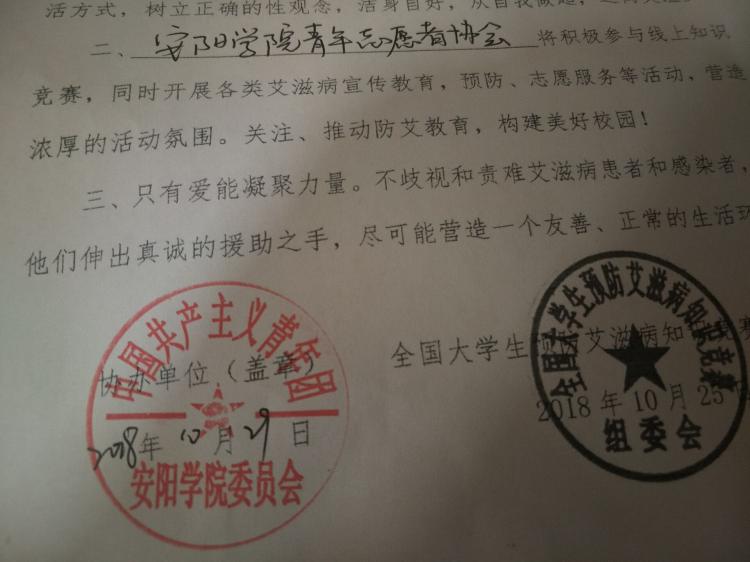 活方式，树立正确的性观念，洁身自好，从自我做起，
二、安阳学院青年志愿者协会将积极参与线上知识
竞赛，同时开展各类艾滋病宣传教育，预防、志愿服务等活动，营造
浓厚的活动氛围。关注、推动防艾教育，构建美好校园！
三、只有爱能凝聚力量。不歧视和责难艾滋病患者和感染者，
他们伸出真诚的援助之手，尽可能营造一个友善、正常的生活环
中国共产主义青年团
协办单位（盖章）
2018年10月29日
安阳学院委员会
全国大学生预防艾滋病知识竞赛
全国大学生预防艾滋病知识竞赛
2018年10月25日
组委会